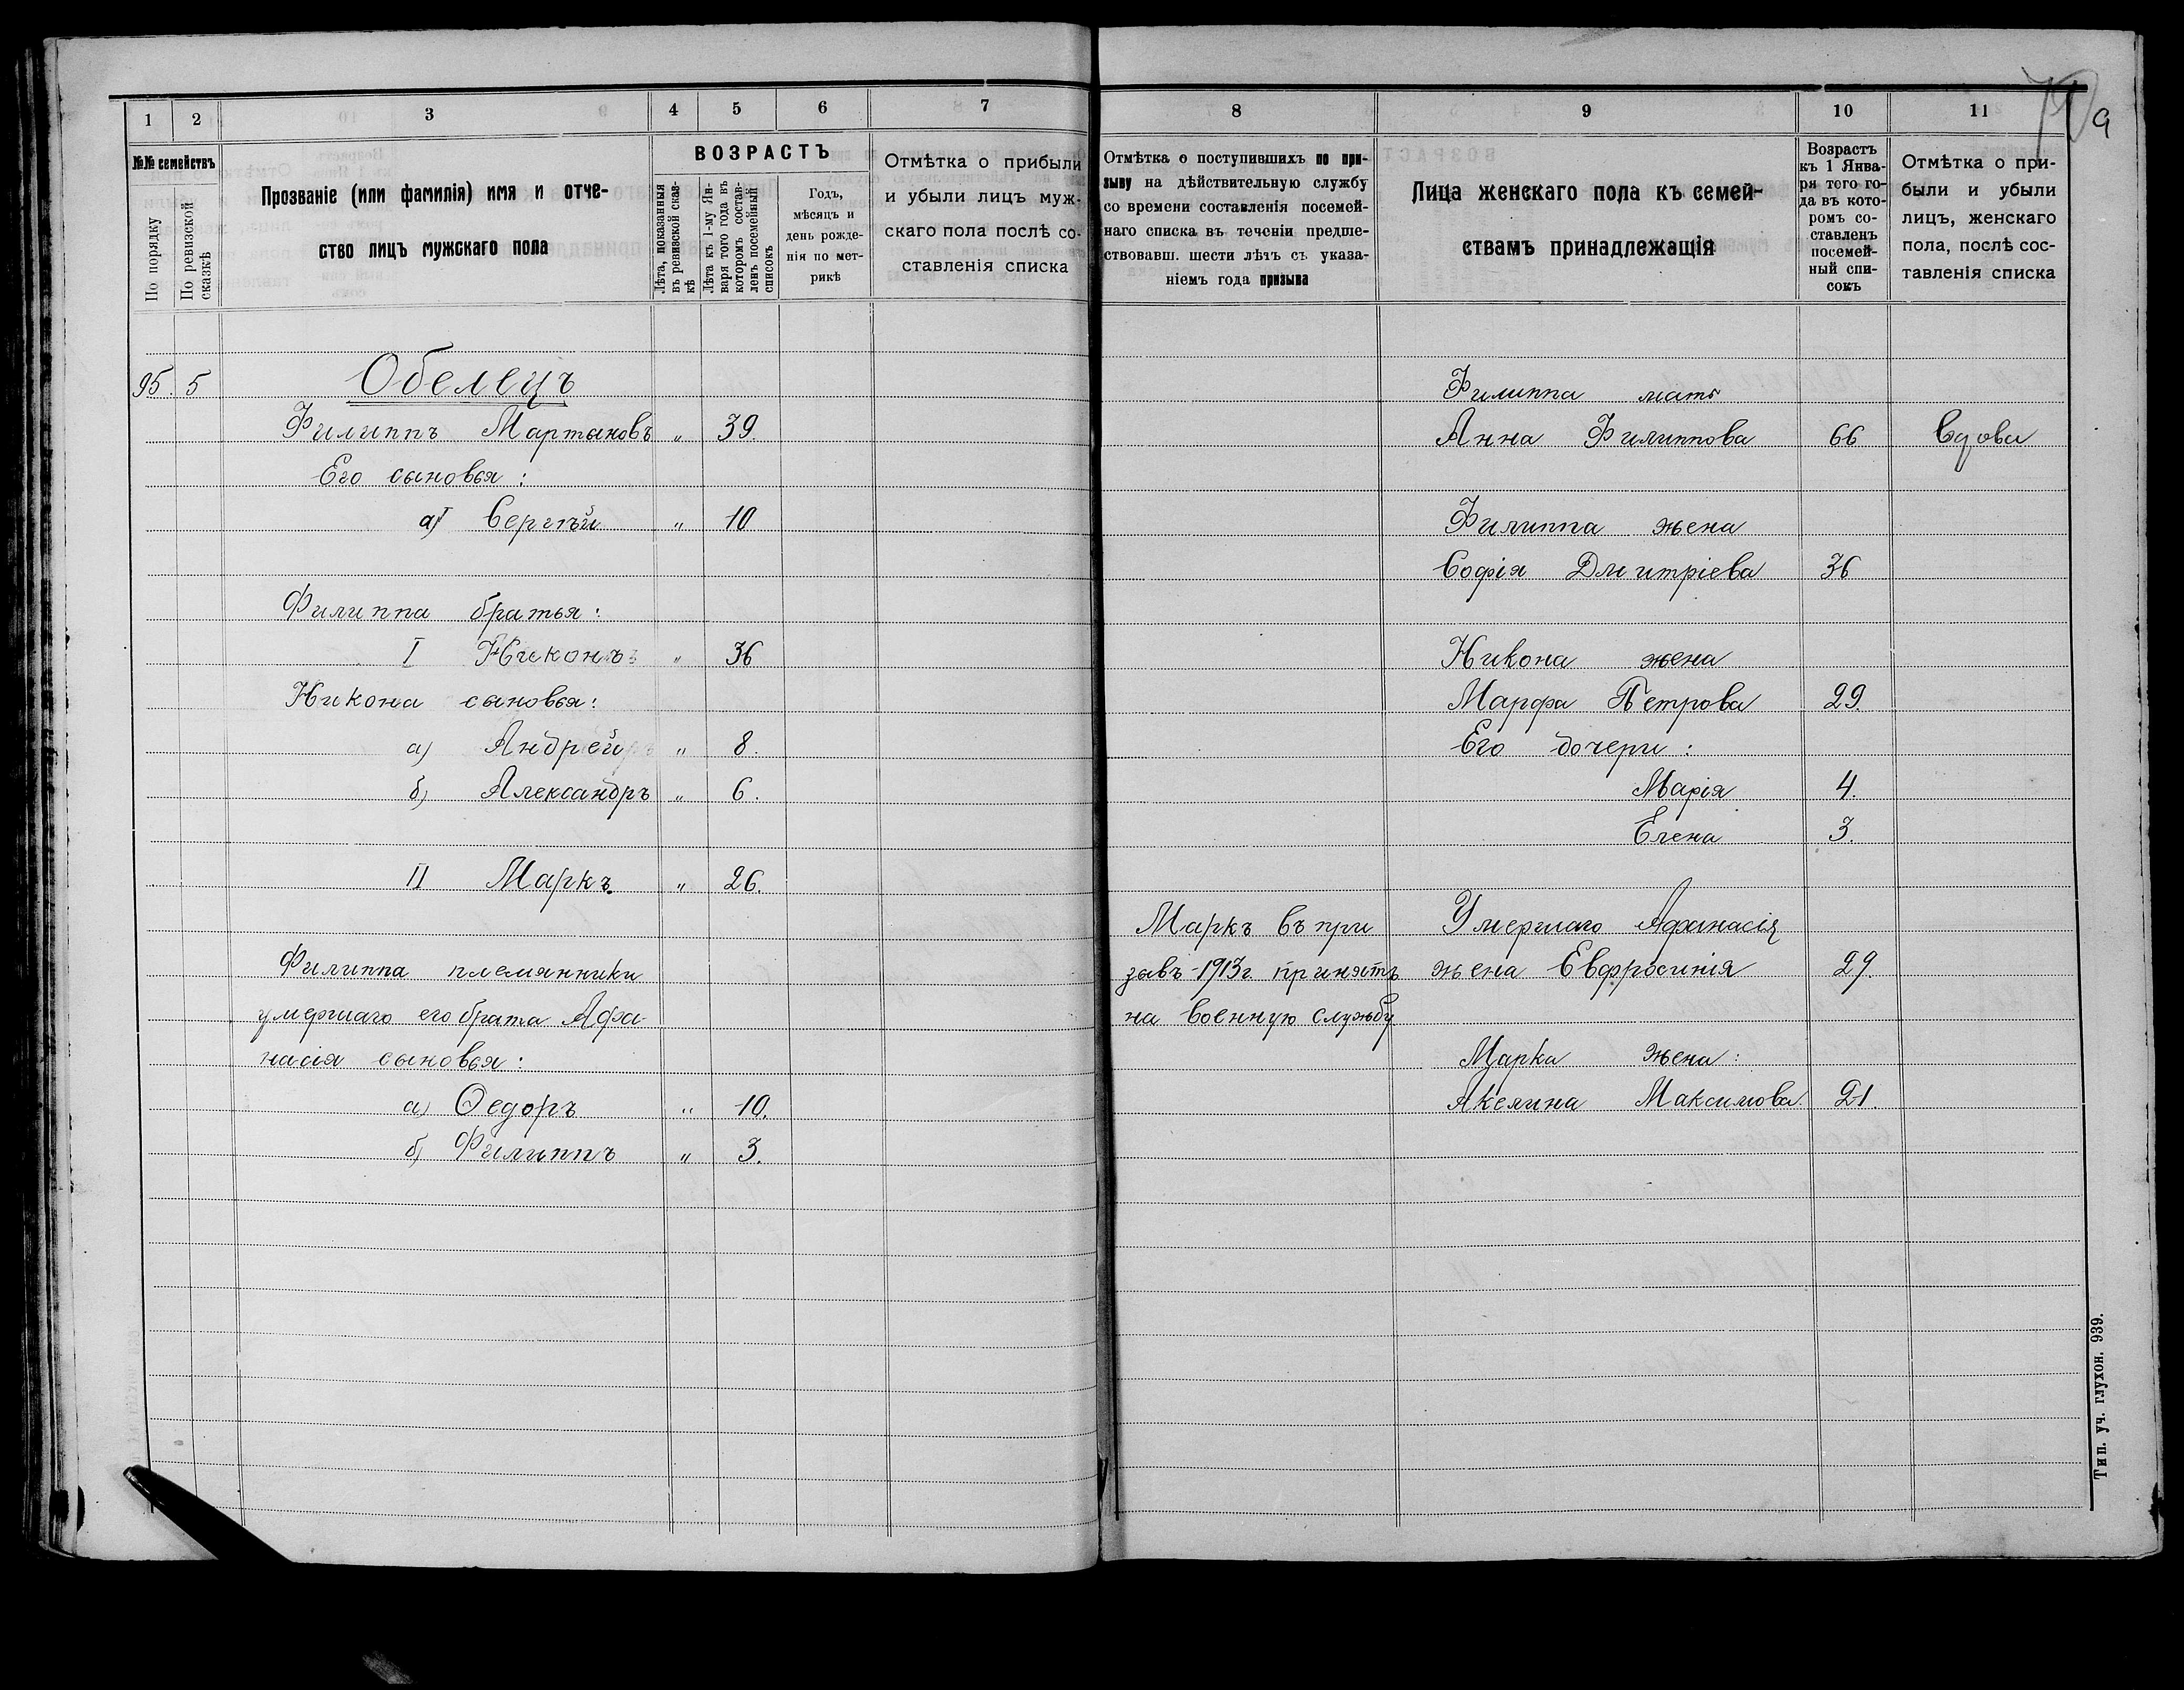 1 2 3 4 5 6 7
№№ семействъ
По порядку
По ревизской сказкѣ
Прозваніе (или фамилія) имя и отче-
ство лицъ мужскаго пола
ВОЗРАСТЪ
Лѣта, показанныя
въ ревизской сказ-
кѣ
Лѣта къ 1-му Ян-
варя того года въ
которомъ состав-
ленъ посемейный
списокъ
Годъ,
мѣсяцъ и
день рожде-
нія по мет-
рикѣ
Отмѣтка о прибыли
и убыли лицъ муж-
скаго пола послѣ со-
ставленія списка
95. 5 Обелецъ
Филиппъ Мартыновъ „ 39.
Его сыновья:
а) Сергѣй „ 10
Филиппа братья:
I Никонъ „ 36
Никона сыновья:
а) Андрей „ 8.
б) Александръ „ 6.
II Маркъ „ 26.
Филиппа племянники
умершаго его брата Афа-
насія сыновья:
а) Ѳедоръ „ 10.
б) Филиппъ „ 3.
8 9 10 11
9
Отмѣтка о поступившихъ по при-
зыву на дѣйствительную службу
со времени составленія посемей-
наго списка въ теченіи предше-
ствовавш. шести лѣтъ съ указа-
ніемъ года призыва
Лица женскаго пола къ семей-
ствамъ принадлежащія
Возрастъ
къ 1 Янва-
ря того го-
да въ кото-
ромъ со-
ставленъ
посемей-
ный спи-
сокъ
Отмѣтка о при-
были и убыли
лицъ, женскаго
пола, послѣ сос-
тавленія списка
Филиппа мать
Анна Филиппова 66 Вдова
Филиппа жена
Софія Дмитріева 36
Никона жена
Марфа Петрова 29.
Его дочери:
Марія 4.
Елена 3.
Маркъ въ при
зывъ 1913г. принятъ
на военную службу
Умершаго Афанасія
жена Евфросинія 29.
Марка жена:
Акелина Максимова. 21.
Тип. уч. глухон. 939.